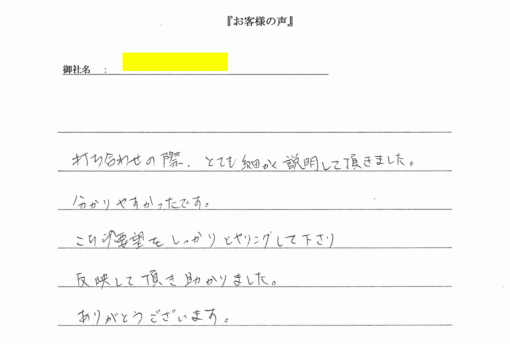 『お客様の声』
御社名 :
打ち合わせの際、とても細かく説明して頂きました。
分かりやすかったです。
こちらの要望をしっかりとヒヤリングして下さり
反映して頂き助かりました。
ありがとうございます。